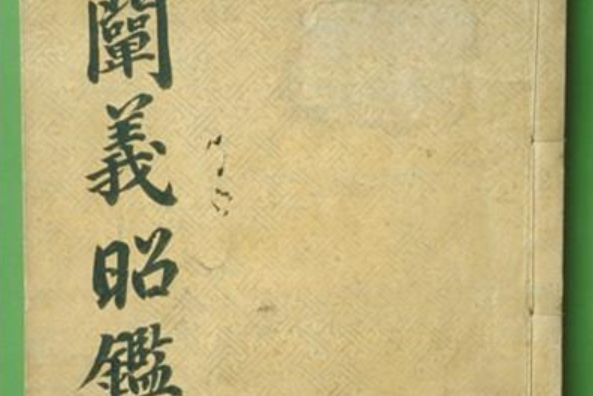 闡義昭鑑